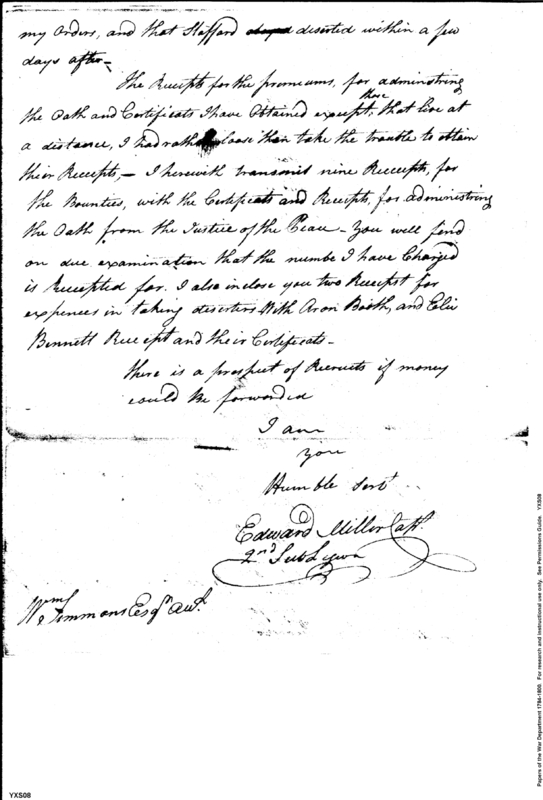 my Orders, and that Stafford deserted within a few
days after—
The Receipts for the premiums, for adminstring
the Oath and Certificats I have Obtained except, those that live at
a distance, I had rather loose than take the trouble to obtain
their Receipts,— I herewith transmit nine Receipts, for
the Bounties, with the Certificats and Receipts, for administring
the Oath from the Justice of the Peace – You will find
on due examination that the numbe I have Charged
is Receipted for. I also inclose you two Receipst for
expences in taking deserters With Aron Booth, and Elie
Bennett Receipt and their Certificats –
there is a prospect of Recruits if money
could be forwarded
I am
you
Humble Servt
Edward Miller Capt.
2nd Sub Legion
Wm Simmons Esqr
YXS08
Papers of the War Department 1784-1800. For research and instructional use only. See Permissions Guide. YXS08